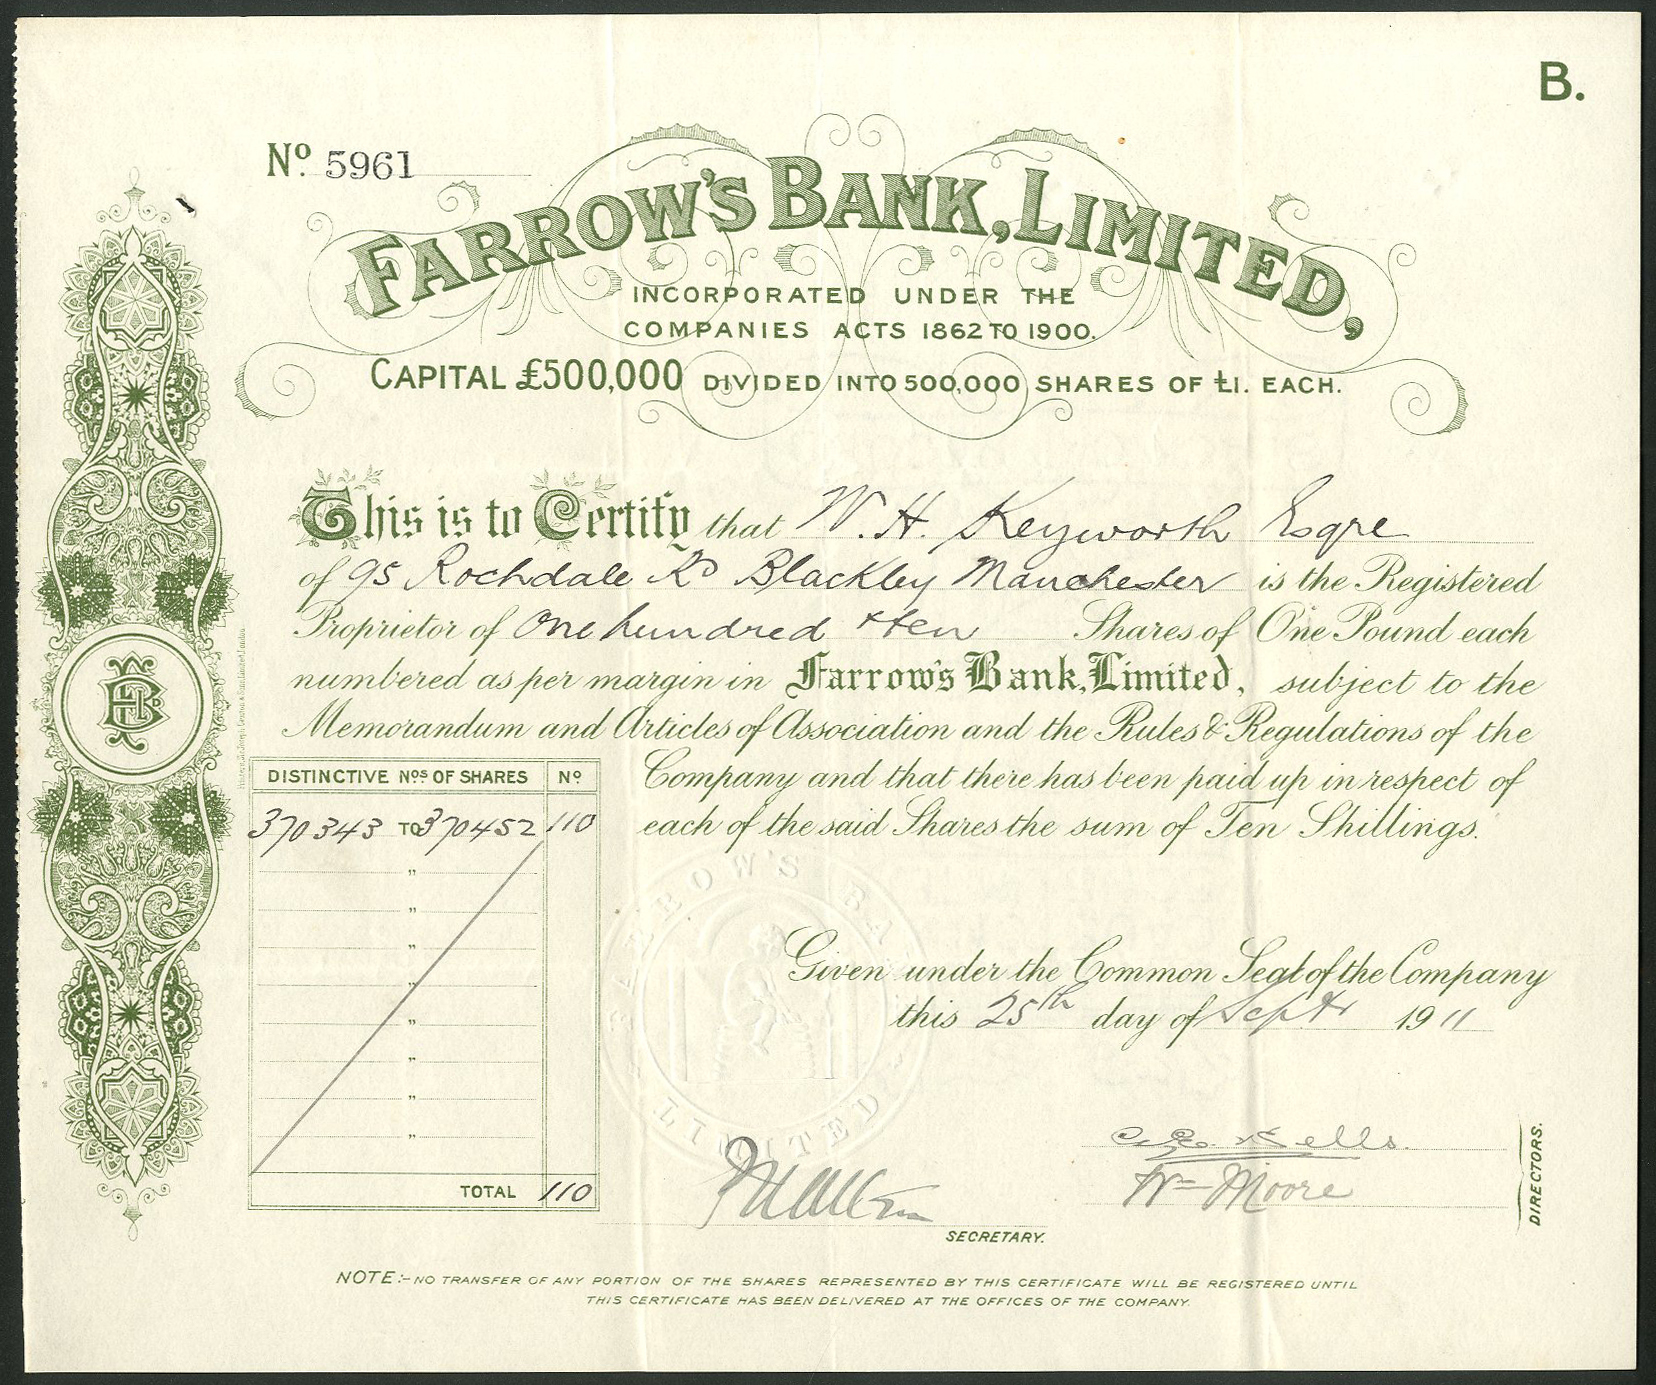 B.
Nº 5961
FARROW'S BANK, LIMITED,
INCORPORATED UNDER THE
COMPANIES ACTS 1862 TO 1900.
CAPITAL £500,000 DIVIDED INTO 500,000 SHARES OF £1. EACH.
This is to Certify that W. H. Keyworth Esqre
of 95 Rochdale Rd Blackley Manchester is the Registered
Proprietor of One hundred & ten Shares of One Pound each
numbered as per margin in Farrow's Bank, Limited, subject to the
Memorandum and Articles of Association and the Rules & Regulations of the
Company and that there has been paid up in respect of
each of the said Shares the sum of Ten Shillings.
DISTINCTIVE Nos. OF SHARES Nº
370343 TO 370452 110
"
"
"
"
"
"
"
"
TOTAL 110
FARROW'S BANK
LIMITED
Given under the Common Seal of the Company
this 25th day of Septr 1911
Wm Moore
DIRECTORS.
SECRETARY.
NOTE:- NO TRANSFER OF ANY PORTION OF THE SHARES REPRESENTED BY THIS CERTIFICATE WILL BE REGISTERED UNTIL
THIS CERTIFICATE HAS BEEN DELIVERED AT THE OFFICES OF THE COMPANY.